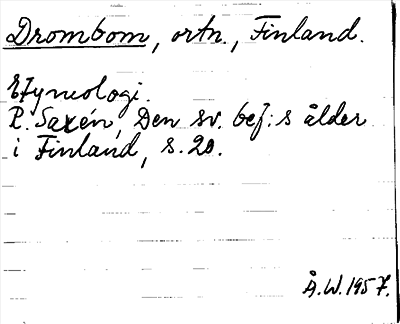 Drombom, ortn., Finland.
Etymologi.
R. Saxén, Den sv. bef:s ålder
i Finland, s. 20.
Å.W. 1957.